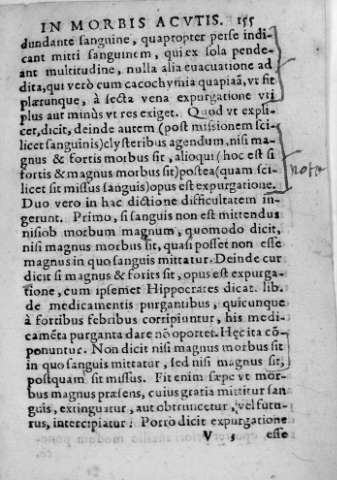 IN MORBIS ACVTIS. 155
dundante sanguine, quapropter per se indi-
cant mitti sanguinem, qui ex sola pende-
ant multitudine, nulla alia euacuatione ad
dita, qui verò cum cacochymia quapiā, vt fit
plærunque, à secta vena expurgatione vti
plus aut minùs vt res exiget. Quod vt expli-
cet, dicit, deinde autem (post missionem sci-
licet sanguinis) clysteribus agendum, nisi ma-
gnus & fortis morbus sit, alioqui (hoc est si
fortis & magnus morbus sit) postea (quam sci-
licet sit missus sanguis) opus est expurgatione.
Duo vero in hac dictione difficultatem in-
gerunt. Primo, si sanguis non est mittendus
nisi ob morbum magnum, quomodo dicit,
nisi magnus morbus sit, quasi posset non esse
magnus in quo sanguis mittatur. Deinde cur
dicit si magnus & fortis sit, opus est expurga-
tione, cum ipsemet Hippocrates dicat. lib.
de medicamentis purgantibus, quicunque
à fortibus febribus corripiuntur, his medi-
camēta purganta dare nō oportet. Hęc ita cō-
ponuntur. Non dicit nisi magnus morbus sit
in quo sanguis mittatur, sed nisi magnus sit,
postquam sit missus. Fit enim sæpe vt mor-
bus magnus præsens, cuius gratia mittitur san
guis, extinguatur, aut obtruncetur, vel futu-
rus, intercipiatur: Porrò dicit expurgatione
V 5 esse
nota